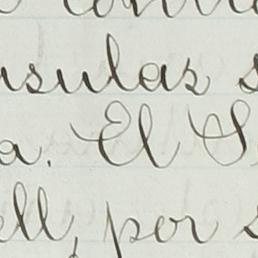 usulas s
a. El S
ell, por s